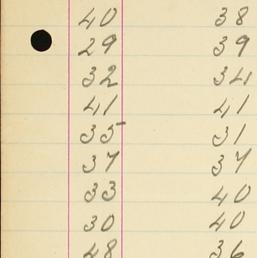 40 38
29 39
32 34
41 41
35 31
37 37
33 40
30 40
48 36